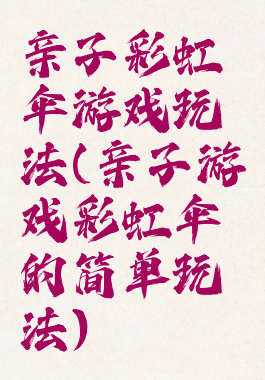 亲子彩虹
伞游戏玩
法(亲子游
戏彩虹伞
的简单玩
法)